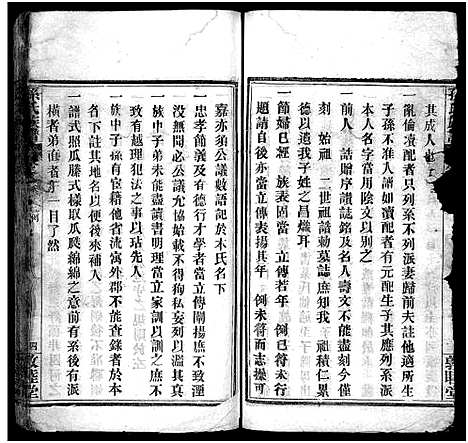 其成人也
一亂倫瀆配者只列系不列派妻歸前夫註他適所生
子孫不准入譜以有犯族規若有元配生子其應列系
本人名字當用陰文以別之
一誥贈序譜誌銘及名人壽文不能盡刻今僅
刻 始祖 二世祖誥勅墓誌庶知我 祖積仁累
德以遺我子姓之昌熾耳
一節婦已經 族表固當 立傳若年例已符未行
題請者亦當立傳表揚其年 例未符而志操可
嘉亦須公議數語記於本氏名下
一忠孝節義及有德行才學者當立傳闡揚庶不致湮
没不彰然必公議允協始載不得狥私妄列以濫其真
一族中子弟未能盡讀書明理當立家訓以訓之庶不
致有越理犯法之事以玷先人
一族中子孫有宦籍他省流寓外郡不能查錄者于本
名下註其地名以便後來補入
一譜式照瓜藤式樣取瓜瓞綿綿之意前有系後有派
橫者弟直者子一目了然
孫氏
四
敦睦堂
敦睦堂